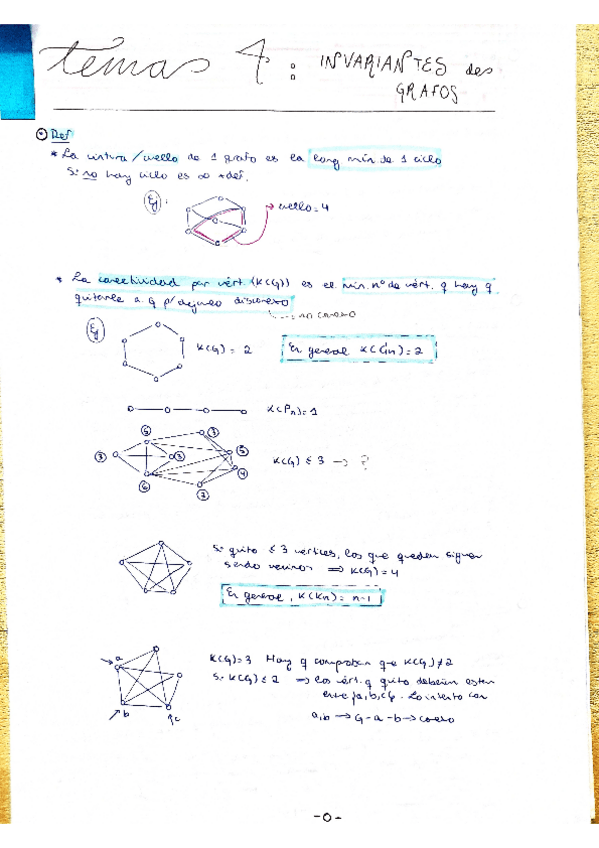 temas 4: INVARIANTES des
GRAFOS
Def
* La cintura/cuello de 1 grafo es la long mín de 1 ciclo
Si no hay ciclo es ∞ +def.
Ej:
→ cuello = 4
* La conectividad por vért. (K(G)) es el mín. nº de vért. q hay q
quitarle a G p/dejarlo disconexo
no conexo
Ej
K(G) = 2
En general K(Cn) = 2
K(Pn) = 1
5 3
3 3 5
4
6 3
K(G) ≤ 3 → ?
Si quito ≤ 3 vértices, los que quedan siguen
siendo vecinos ⇒ K(G) = 4
En general, K(Kn) = n-1
a
b
c
K(G) = 3 Hay q comprobar que K(G) ≠ 2
Si K(G) ≤ 2 → los vért. q quito deberían estar
entre {a, b, c}. Lo intento con
a, b → G - a - b → conexo
-0-